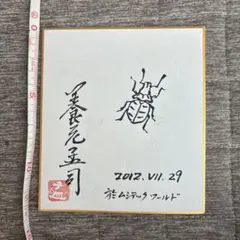 養老孟司
2012.VII.29
於ムシテックワールド